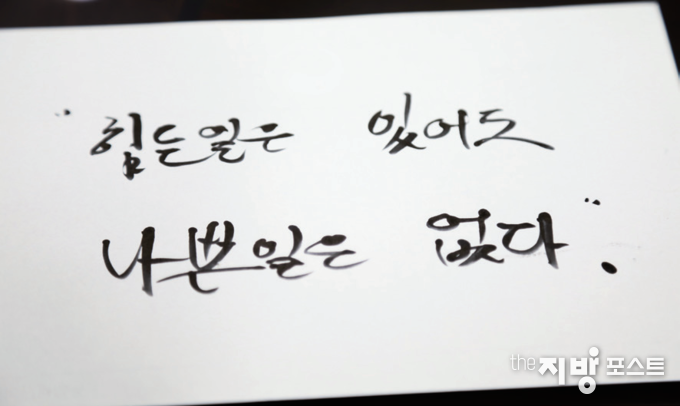 "힘든일은 있어도
나쁜일은 없다".
the 지방포스트